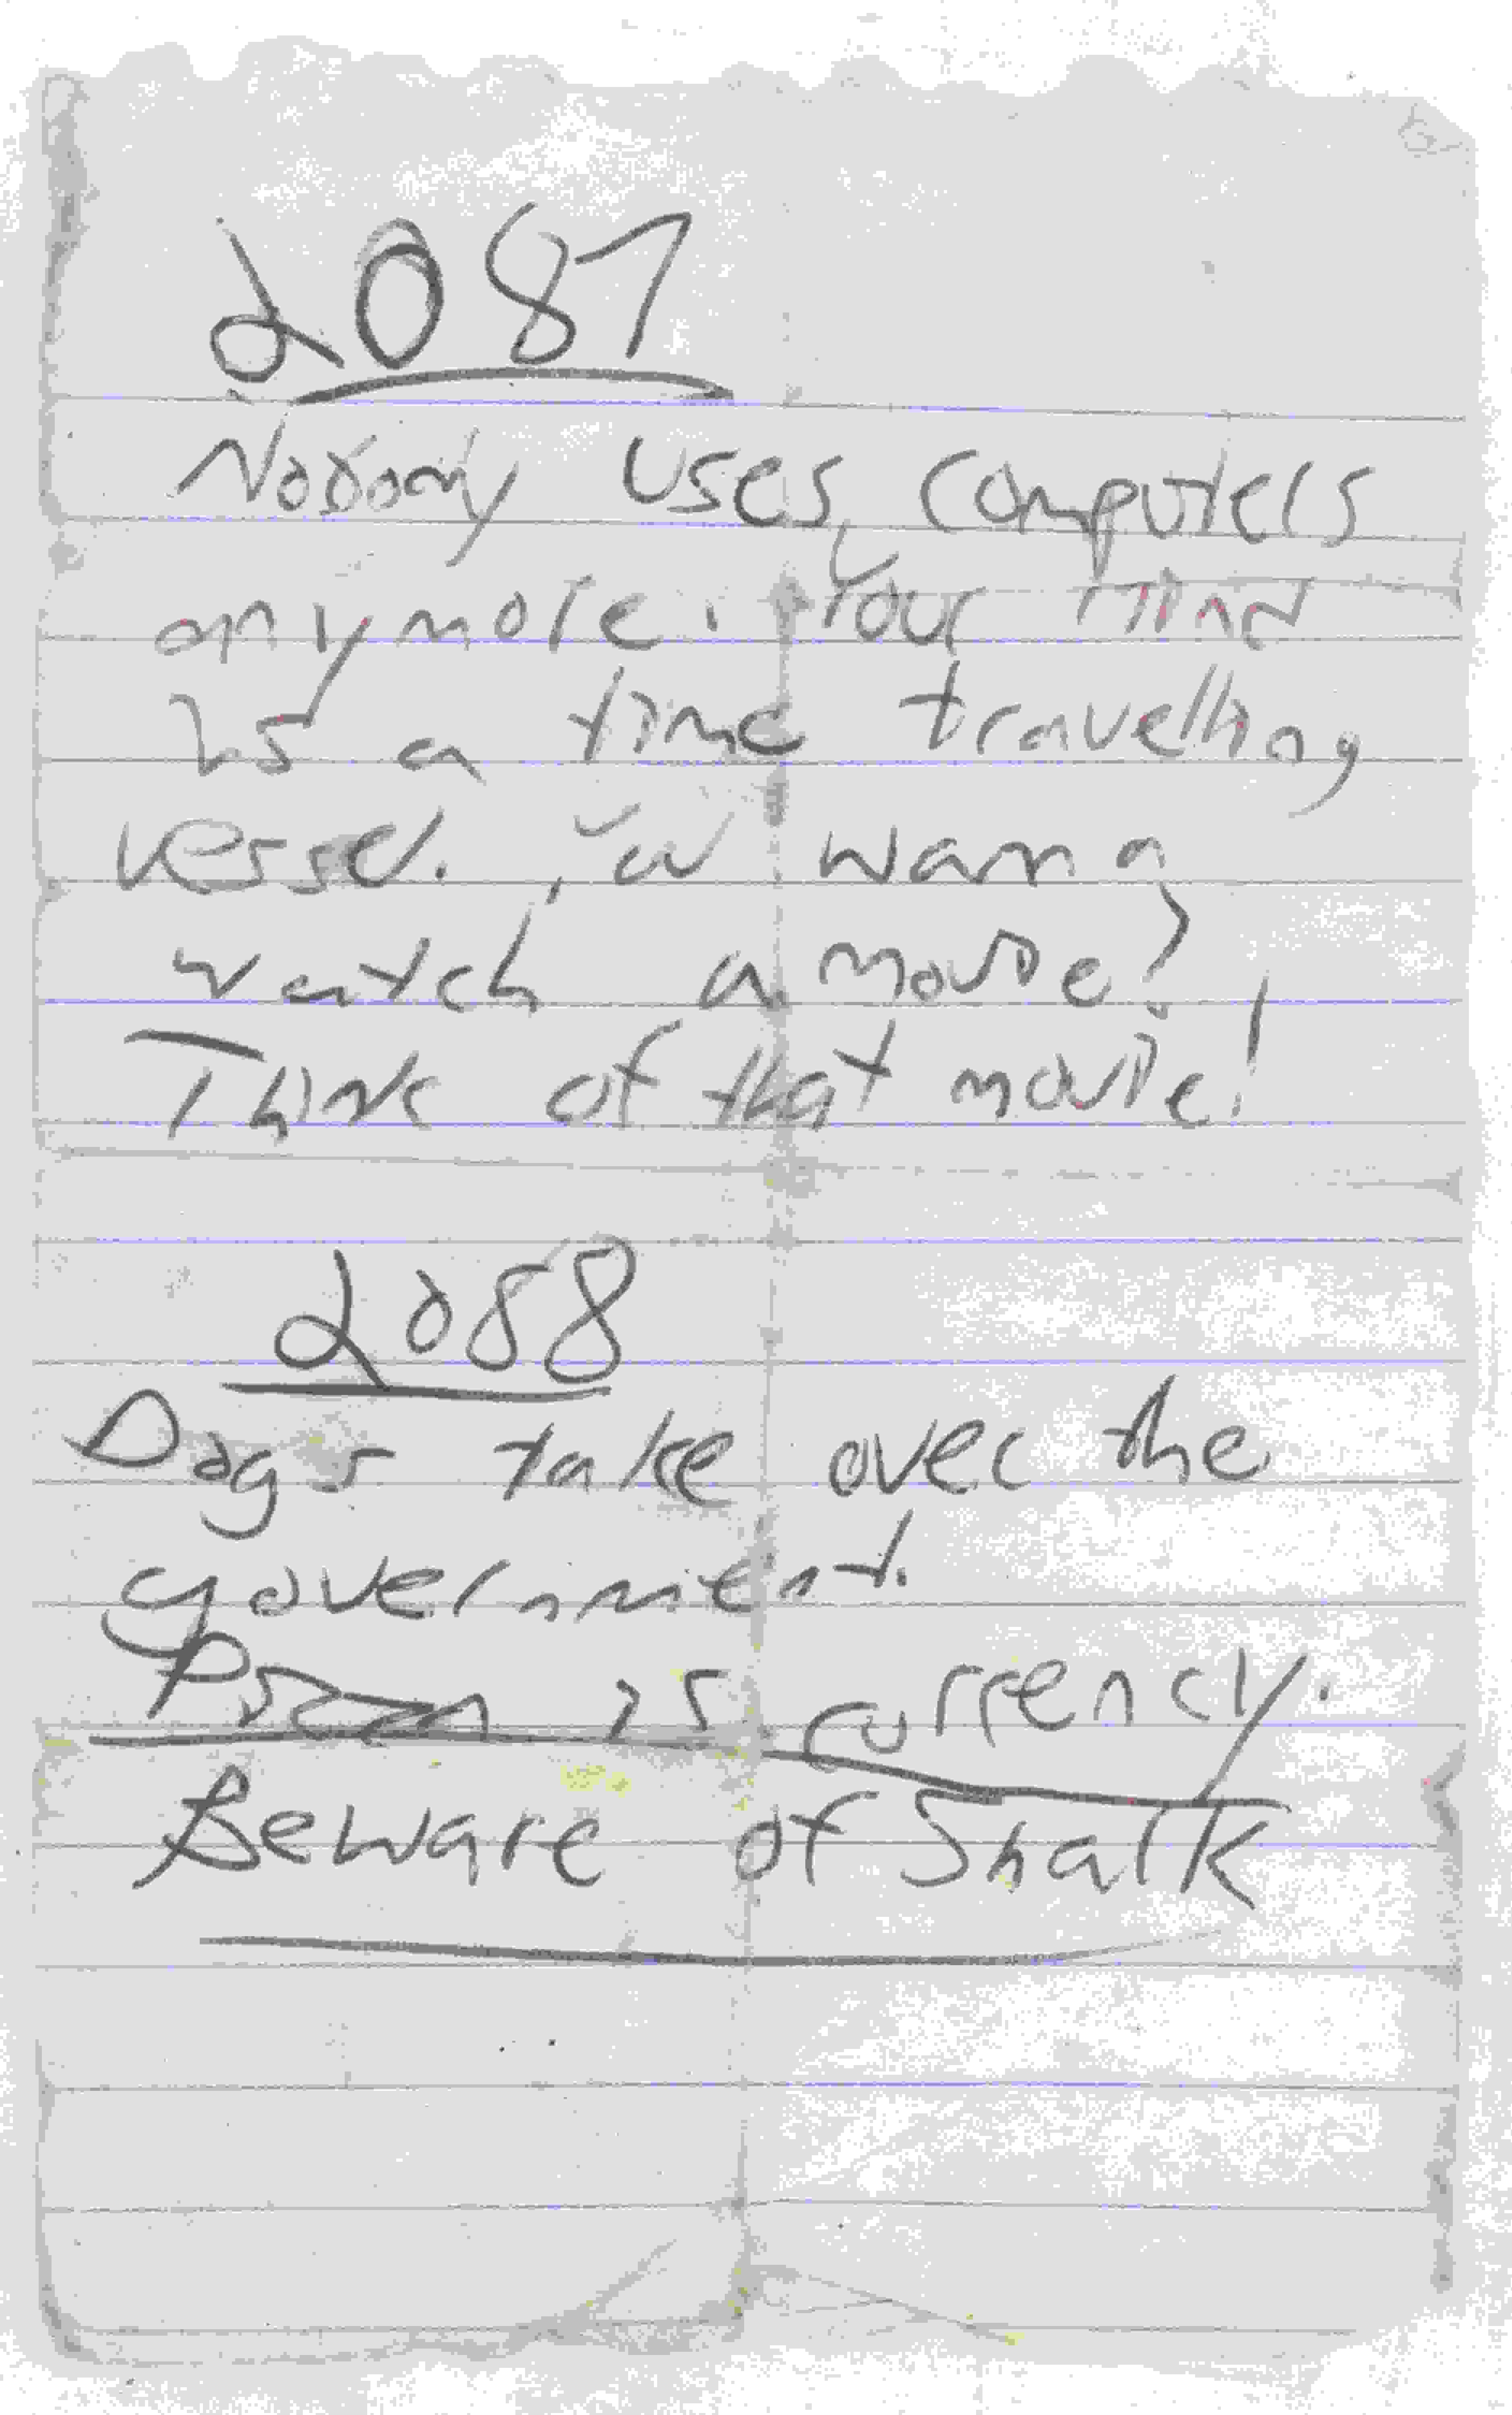 2087
Nobody uses computers
anymore. Your mind
is a time travelling
vessel. You wanna
watch a movie?
Think of that movie!
2088
Dogs take over the
government.
is currency.
Beware of Shark